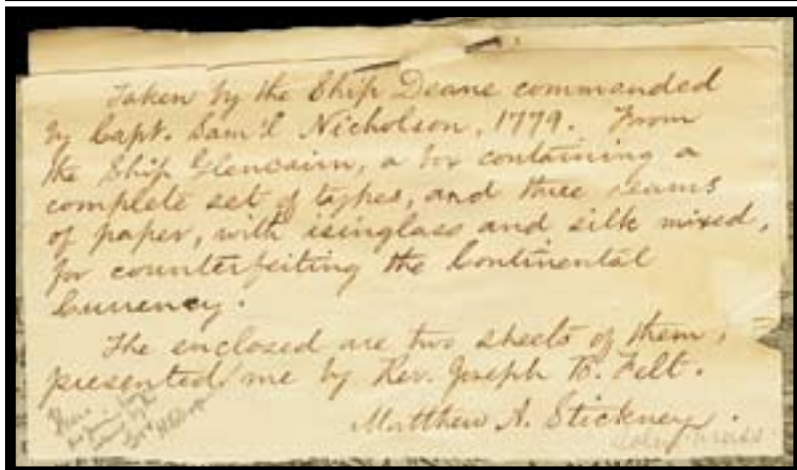 Taken by the Ship Deane commanded
by Capt. Sam'l Nicholson, 1779. From
the Ship Glencairn, a box containing a
complete set of types, and three reams
of paper, with isinglass and silk mixed,
for counterfeiting the Continental
Currency.
The enclosed are two sheets of them,
presented me by Rev. Joseph B. Felt.
Matthew A. Stickney.